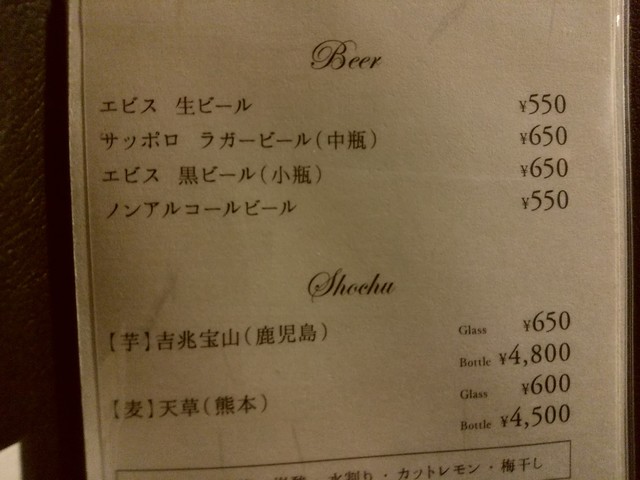 Beer
エビス 生ビール ¥550
サッポロ ラガービール(中瓶) ¥650
エビス 黒ビール(小瓶) ¥650
ノンアルコールビール ¥550
Shochu
【芋】吉兆宝山(鹿児島) Glass ¥650
Bottle ¥4,800
【麦】天草(熊本) Glass ¥600
Bottle ¥4,500
水割り・カットレモン・梅干し